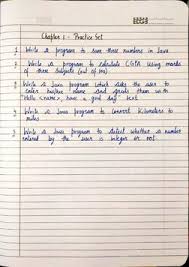 Chapter 1 - Practice Set
1 Write a program to sum three numbers in Java
2 Write a program to calculate CGPA using marks
of three subjects (out of 100)
3 Write a Java program which asks the user to
enter his/her name and greets them with
"Hello <name>, have a good day" text
4 Write a Java program to convert Kilometers to
miles
5 Write a Java program to detect whether a number
entered by the user is integer or not